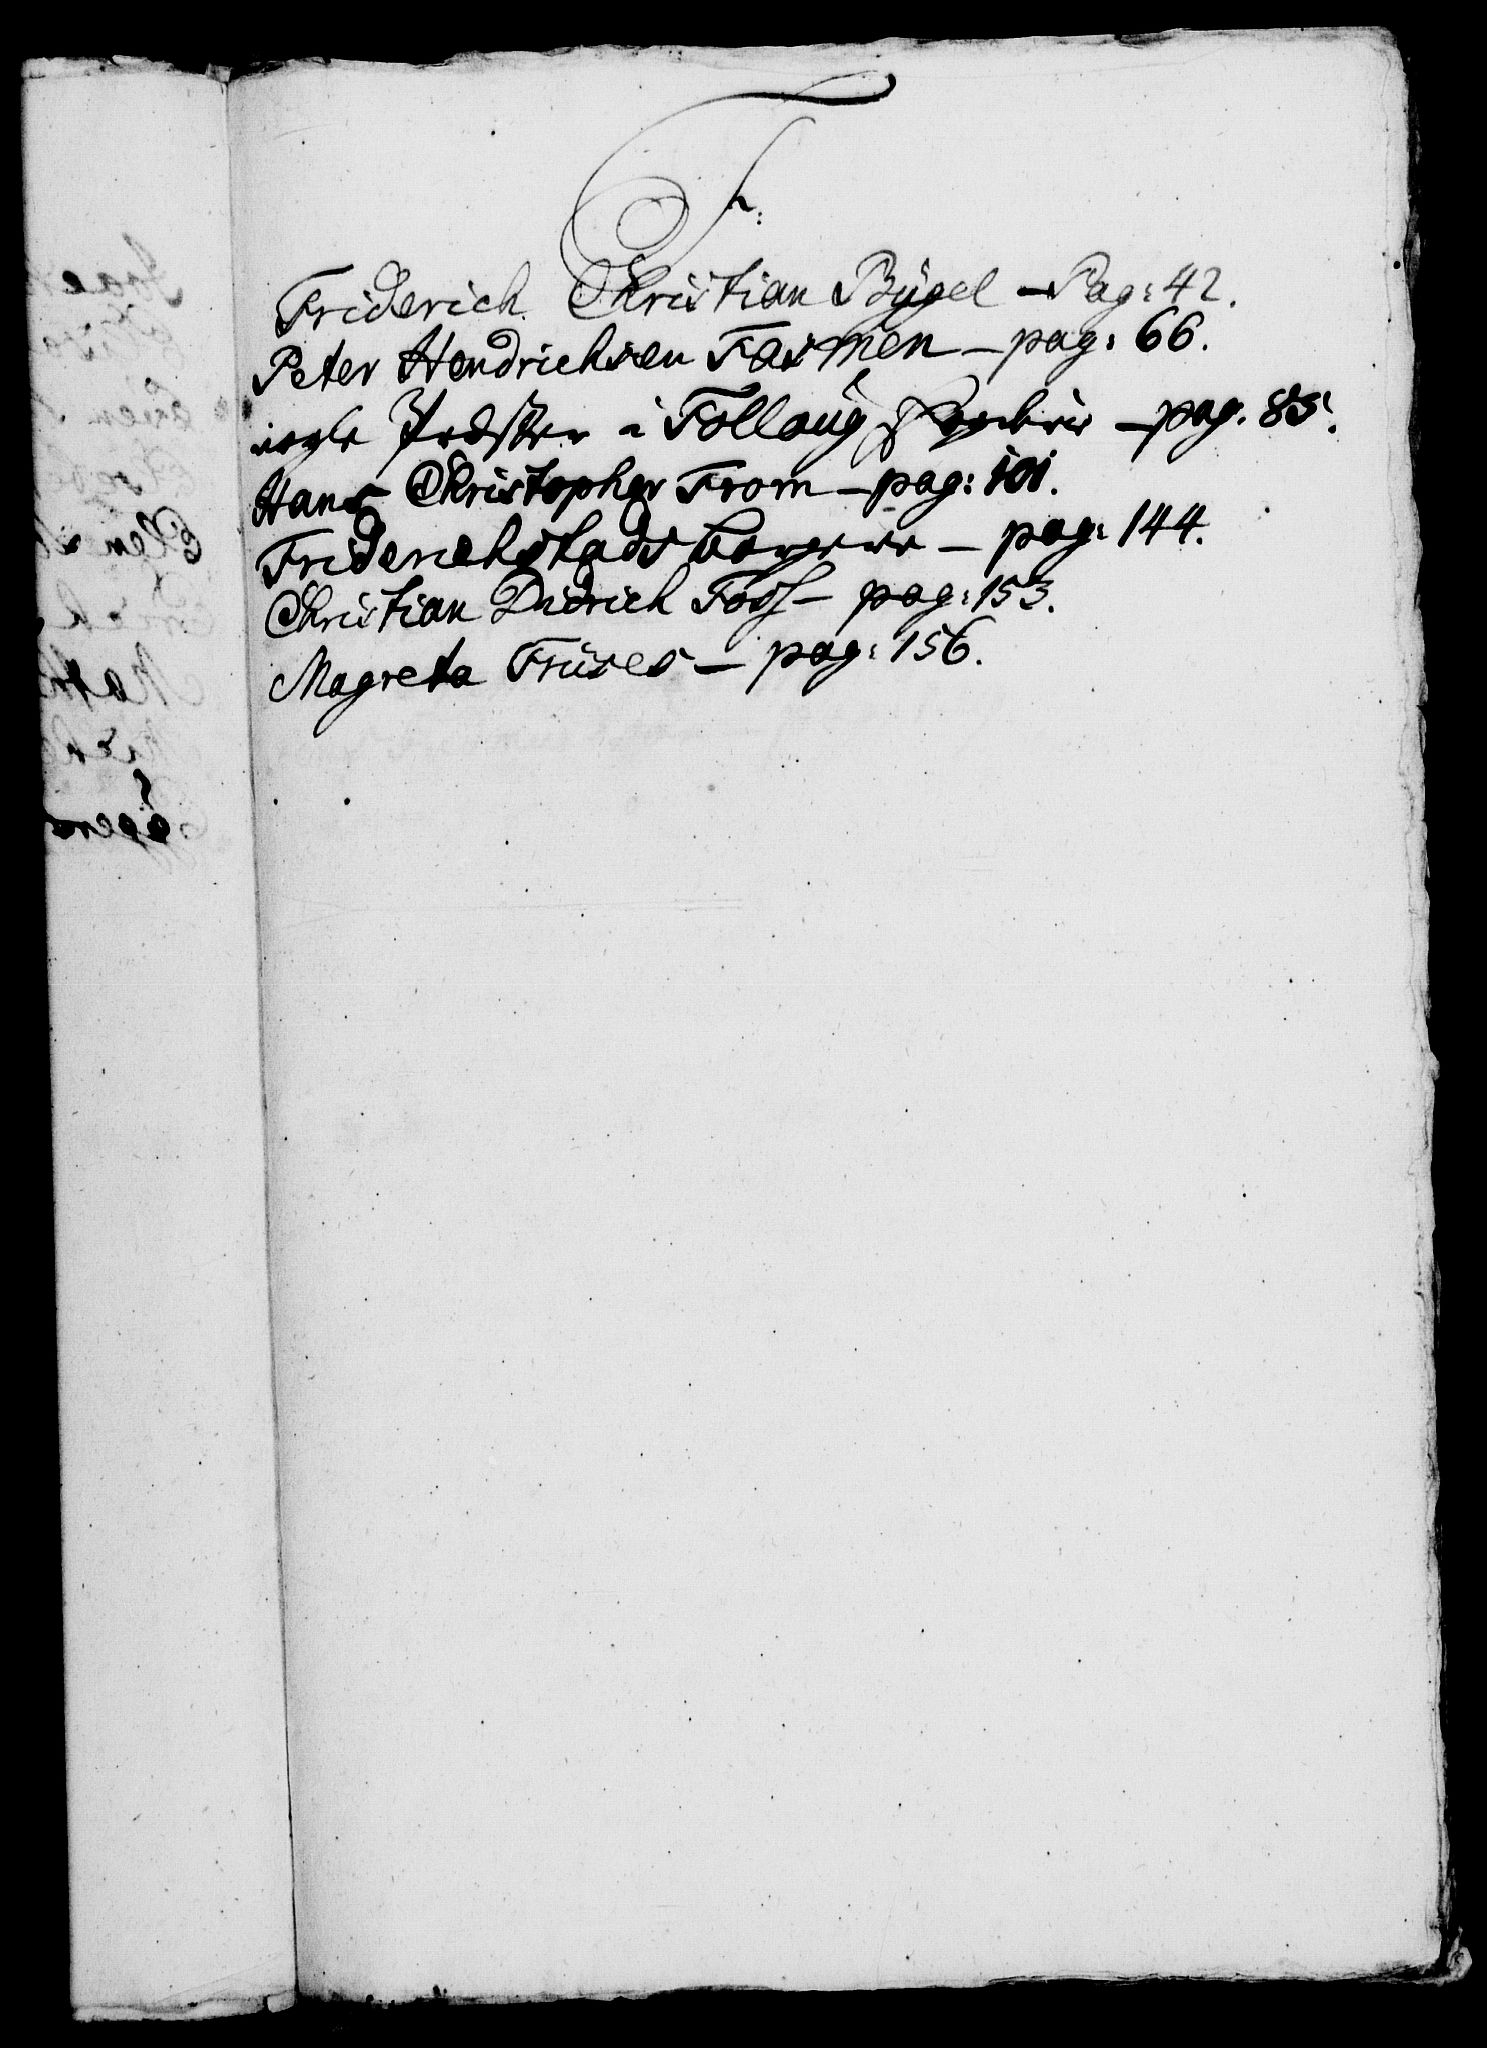 F:
Friderich Christian Bügel – Pag: 42.
Peter Hendrichsen Fasmen – pag: 66.
nogle Præster i Folloug Fogderie – pag. 85.
Hans Christopher From – pag: 101.
Friderichstads borgere – pag: 144.
Christian Didrich Foss – pag: 153.
Magreta Friises – pag: 156.